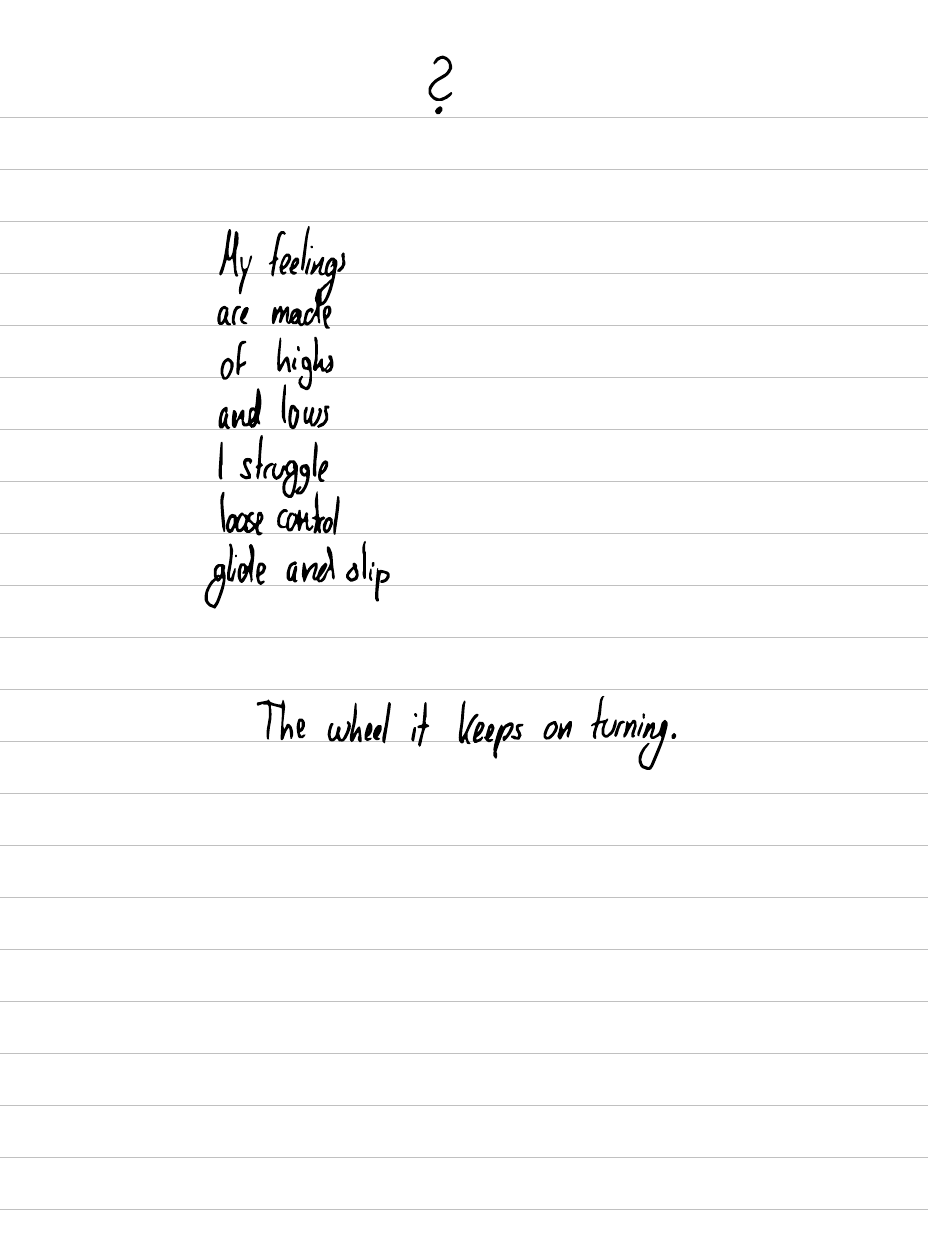 ?
My feelings
are made
of highs
and lows
I struggle
loose control
glide and slip
The wheel it keeps on turning.